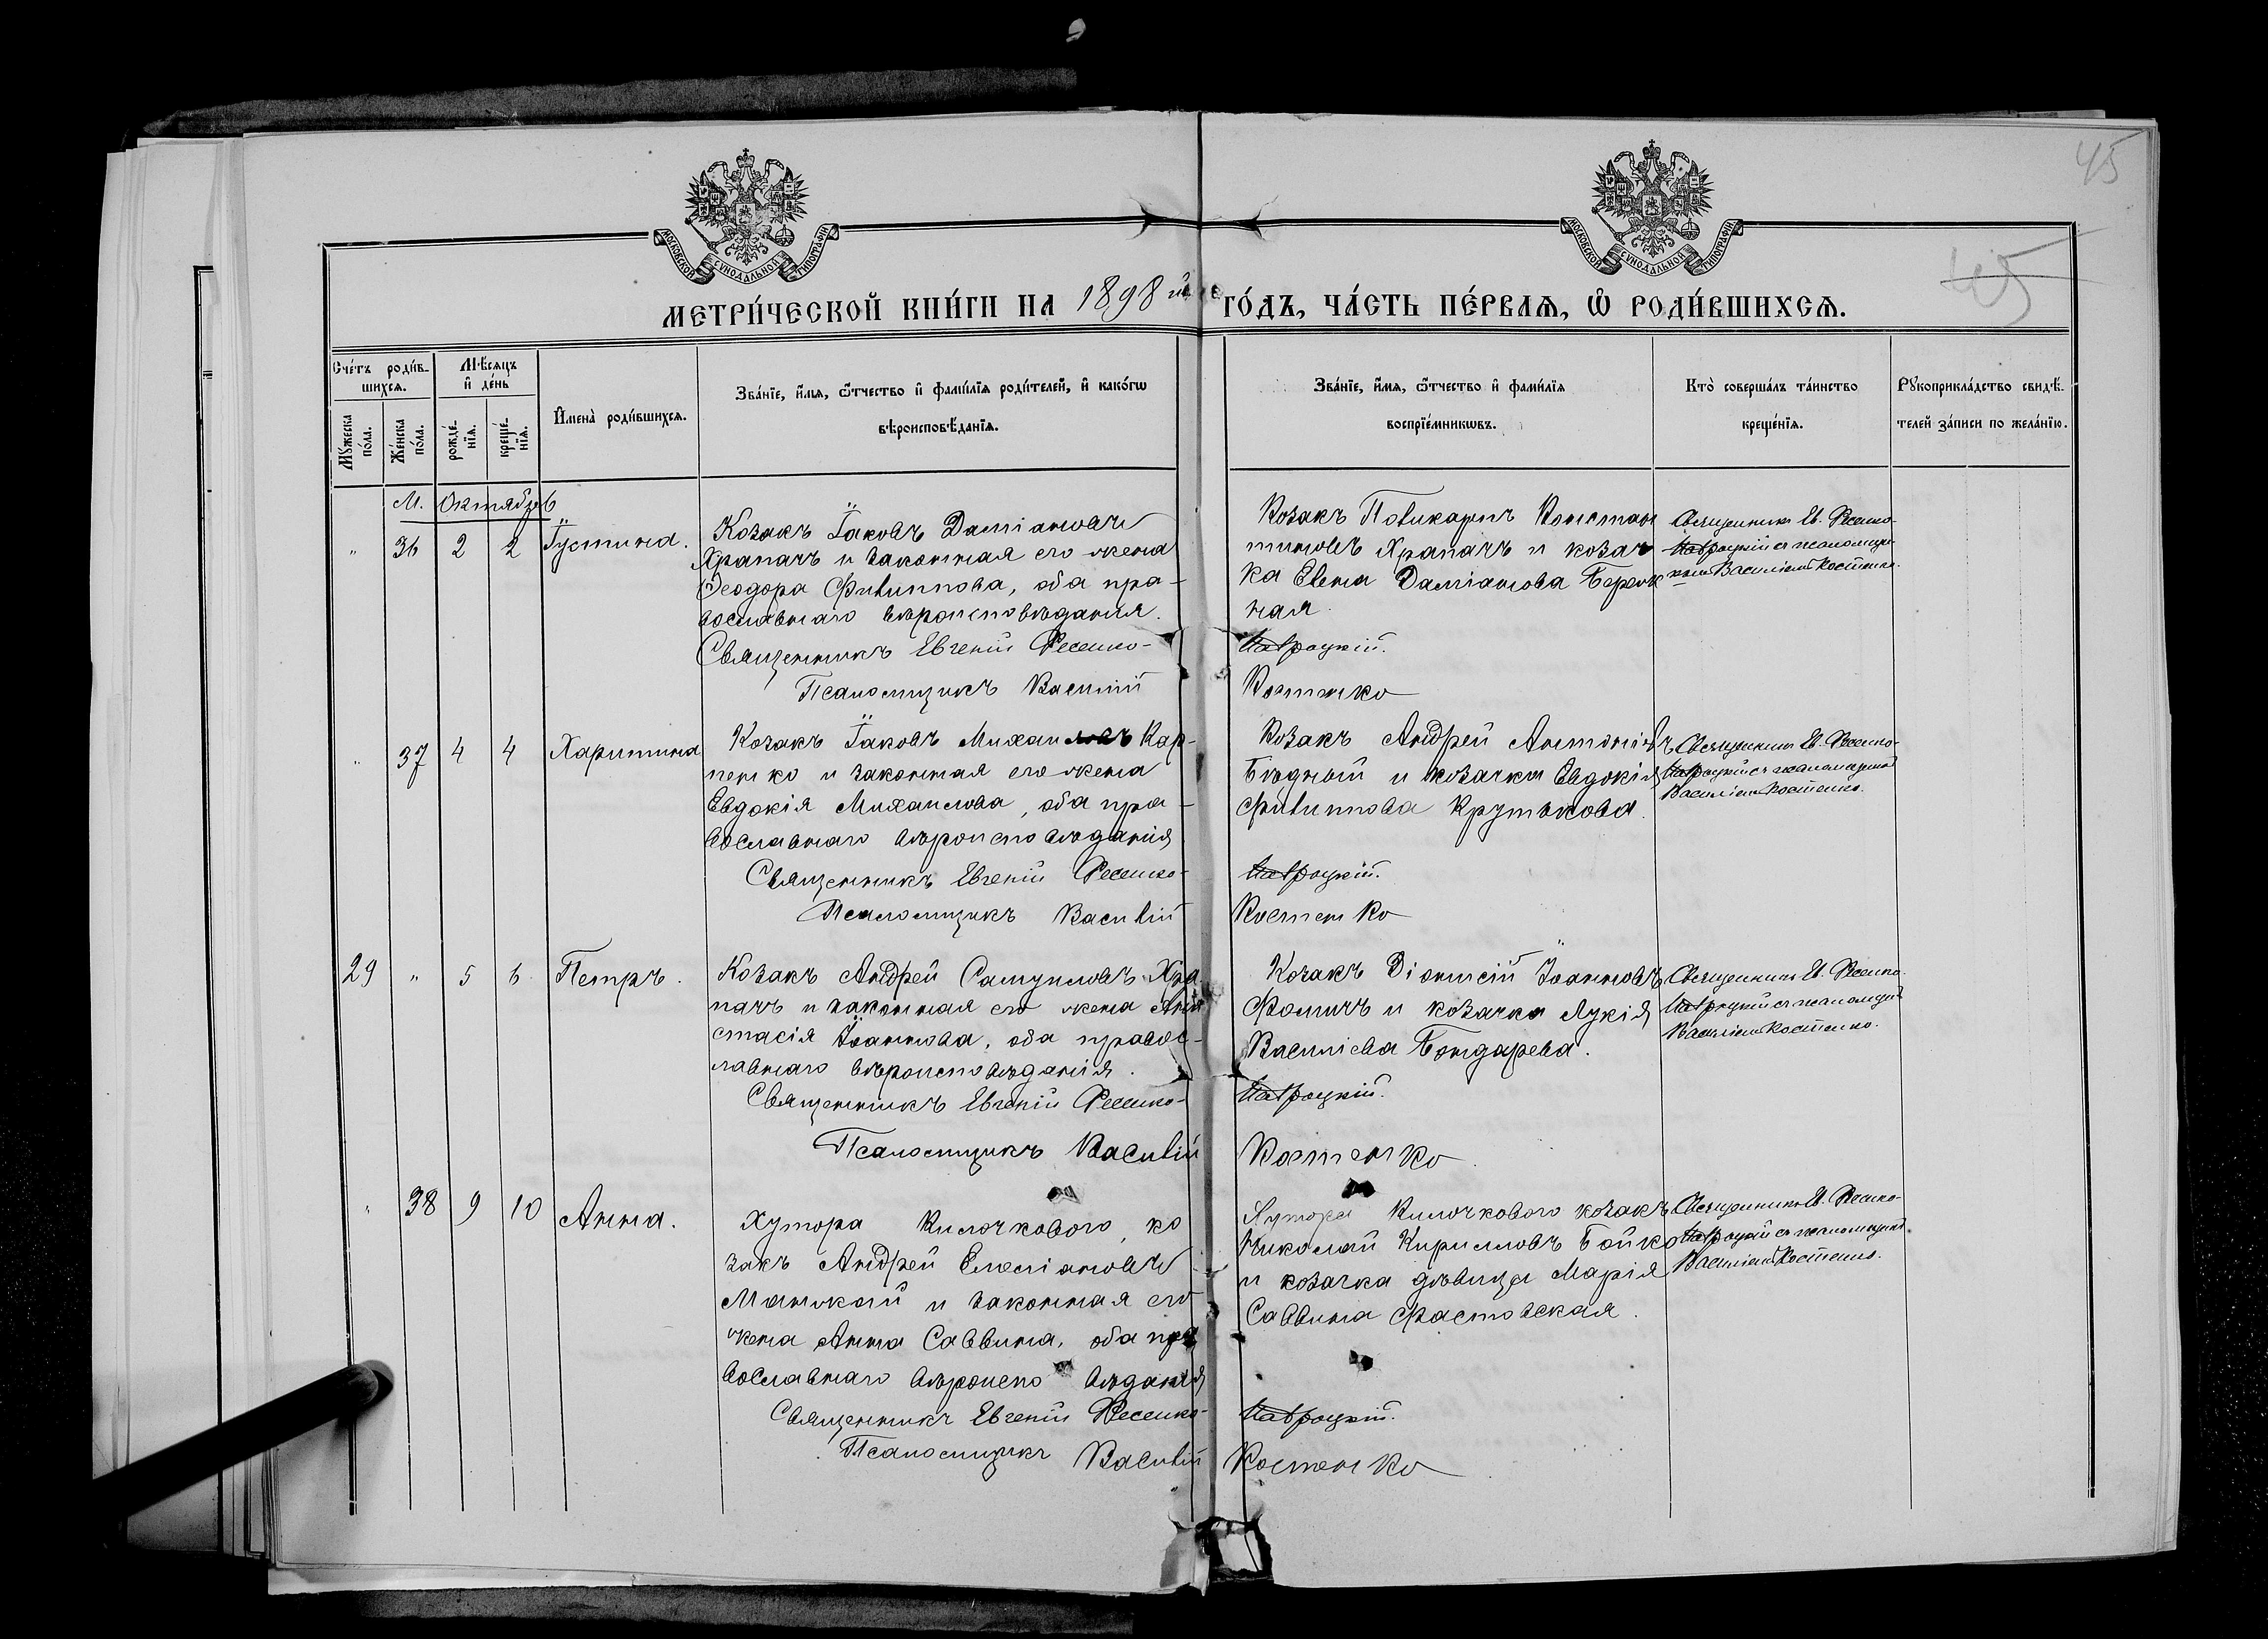 45
45
МОСКОВСКОЙ СУНОДАЛЬНОЙ ТИПОГРАФІИ
МОСКОВСКОЙ СУНОДАЛЬНОЙ ТИПОГРАФІИ
МЕТРИ́ЧЕСКОЙ КНИ́ГИ НА 1898 й
ГО́ДЪ, ЧА́СТЬ ПЕ́РВАѦ, Ѽ РОДИ́ВШИХСѦ.
Сче́тъ роди́в-
шихсѧ.
Мꙋжеска по́ла.
Же́нска по́ла.
Мѣ́сѧцъ
и҆ де́нь
рожде́-нїѧ.
креще́-нїѧ.
И҆мена̀ роди́вшихсѧ.
Зва́нїе, и҆́мѧ, ѻ҆́тчество и҆ фами́лїѧ роди́телей, и҆ како́гѡ
вѣроисповѣ́данїѧ.
Зва́нїе, и҆́мѧ, ѻ҆́тчество и҆ фами́лїѧ
воспрїе́мникѡвъ.
Кто̀ соверша́лъ та́инство
креще́нїѧ.
Рꙋкоприкла́дство свидѣ́-
телей за́писи по жела́нїю.
М. Октябрь
" 36 2 2 Іустина.
Козакъ Іаковъ Даміановъ
Храпачъ и законная его жена
Ѳеодора Филиппова, оба пра-
вославнаго вѣроисповѣданія.
Священникъ Евгеній Фесенко-
Псаломщикъ Василій
Козакъ Поликарпъ Констан
тиновъ Храпачъ и козач
ка Елена Даміанова Береж
ная.
Навроцкій.
Костенко
Священникъ Ев. Фесенко-
Навроцкій съ псаломщи-
комъ Василіемъ Костенко.
" 37 4 4 Харитина
Козакъ Іаковъ Михаиловъ Кар-
пенко и законная его жена
Евдокія Михаилова, оба пра-
вославнаго вѣроисповѣданія
Священникъ Евгеній Фесенко-
Псаломщикъ Василій
Козакъ Андрей Антоніевъ
Бѣдный и козачка Евдокія
Филиппова Крутькова.
Навроцкій.
Костенко
Священникъ Ев. Фесенко-
Навроцкій съ псаломщикомъ
Василіемъ Костенко.
29 " 5 6 Петръ.
Козакъ Андрей Самуиловъ Хра
пачъ и законная его жена Ана
стасія Іоаннова, оба правос-
лавнаго вѣроисповѣданія.
Священникъ Евгеній Фесенко-
Псаломщикъ Василій
Козакъ Діонисій Іоанновъ
Фомичъ и козачка Лукія
Василіева Бондарева.
Навроцкій.
Костенко
Священникъ Ев. Фесенко-
Навроцкій съ псаломщик
Василіемъ Костенко.
" 38 9 10 Анна.
Хутора Килочкового, ко
закъ Андрей Емеліановъ
Манжай и законная его
жена Анна Саввина, оба пра
вославнаго вѣроиспо вѣданія
Священникъ Евгеній Фесенко-
Псаломщикъ Василій
Хутора Килочкового козакъ
Николай Кирилловъ Бойко
и козачка дѣвица Марія
Саввина Фастовская.
Навроцкій.
Костенко
Священникъ Ев. Фесенко-
Навроцкій съ псаломщикомъ
Василіемъ Костенко.